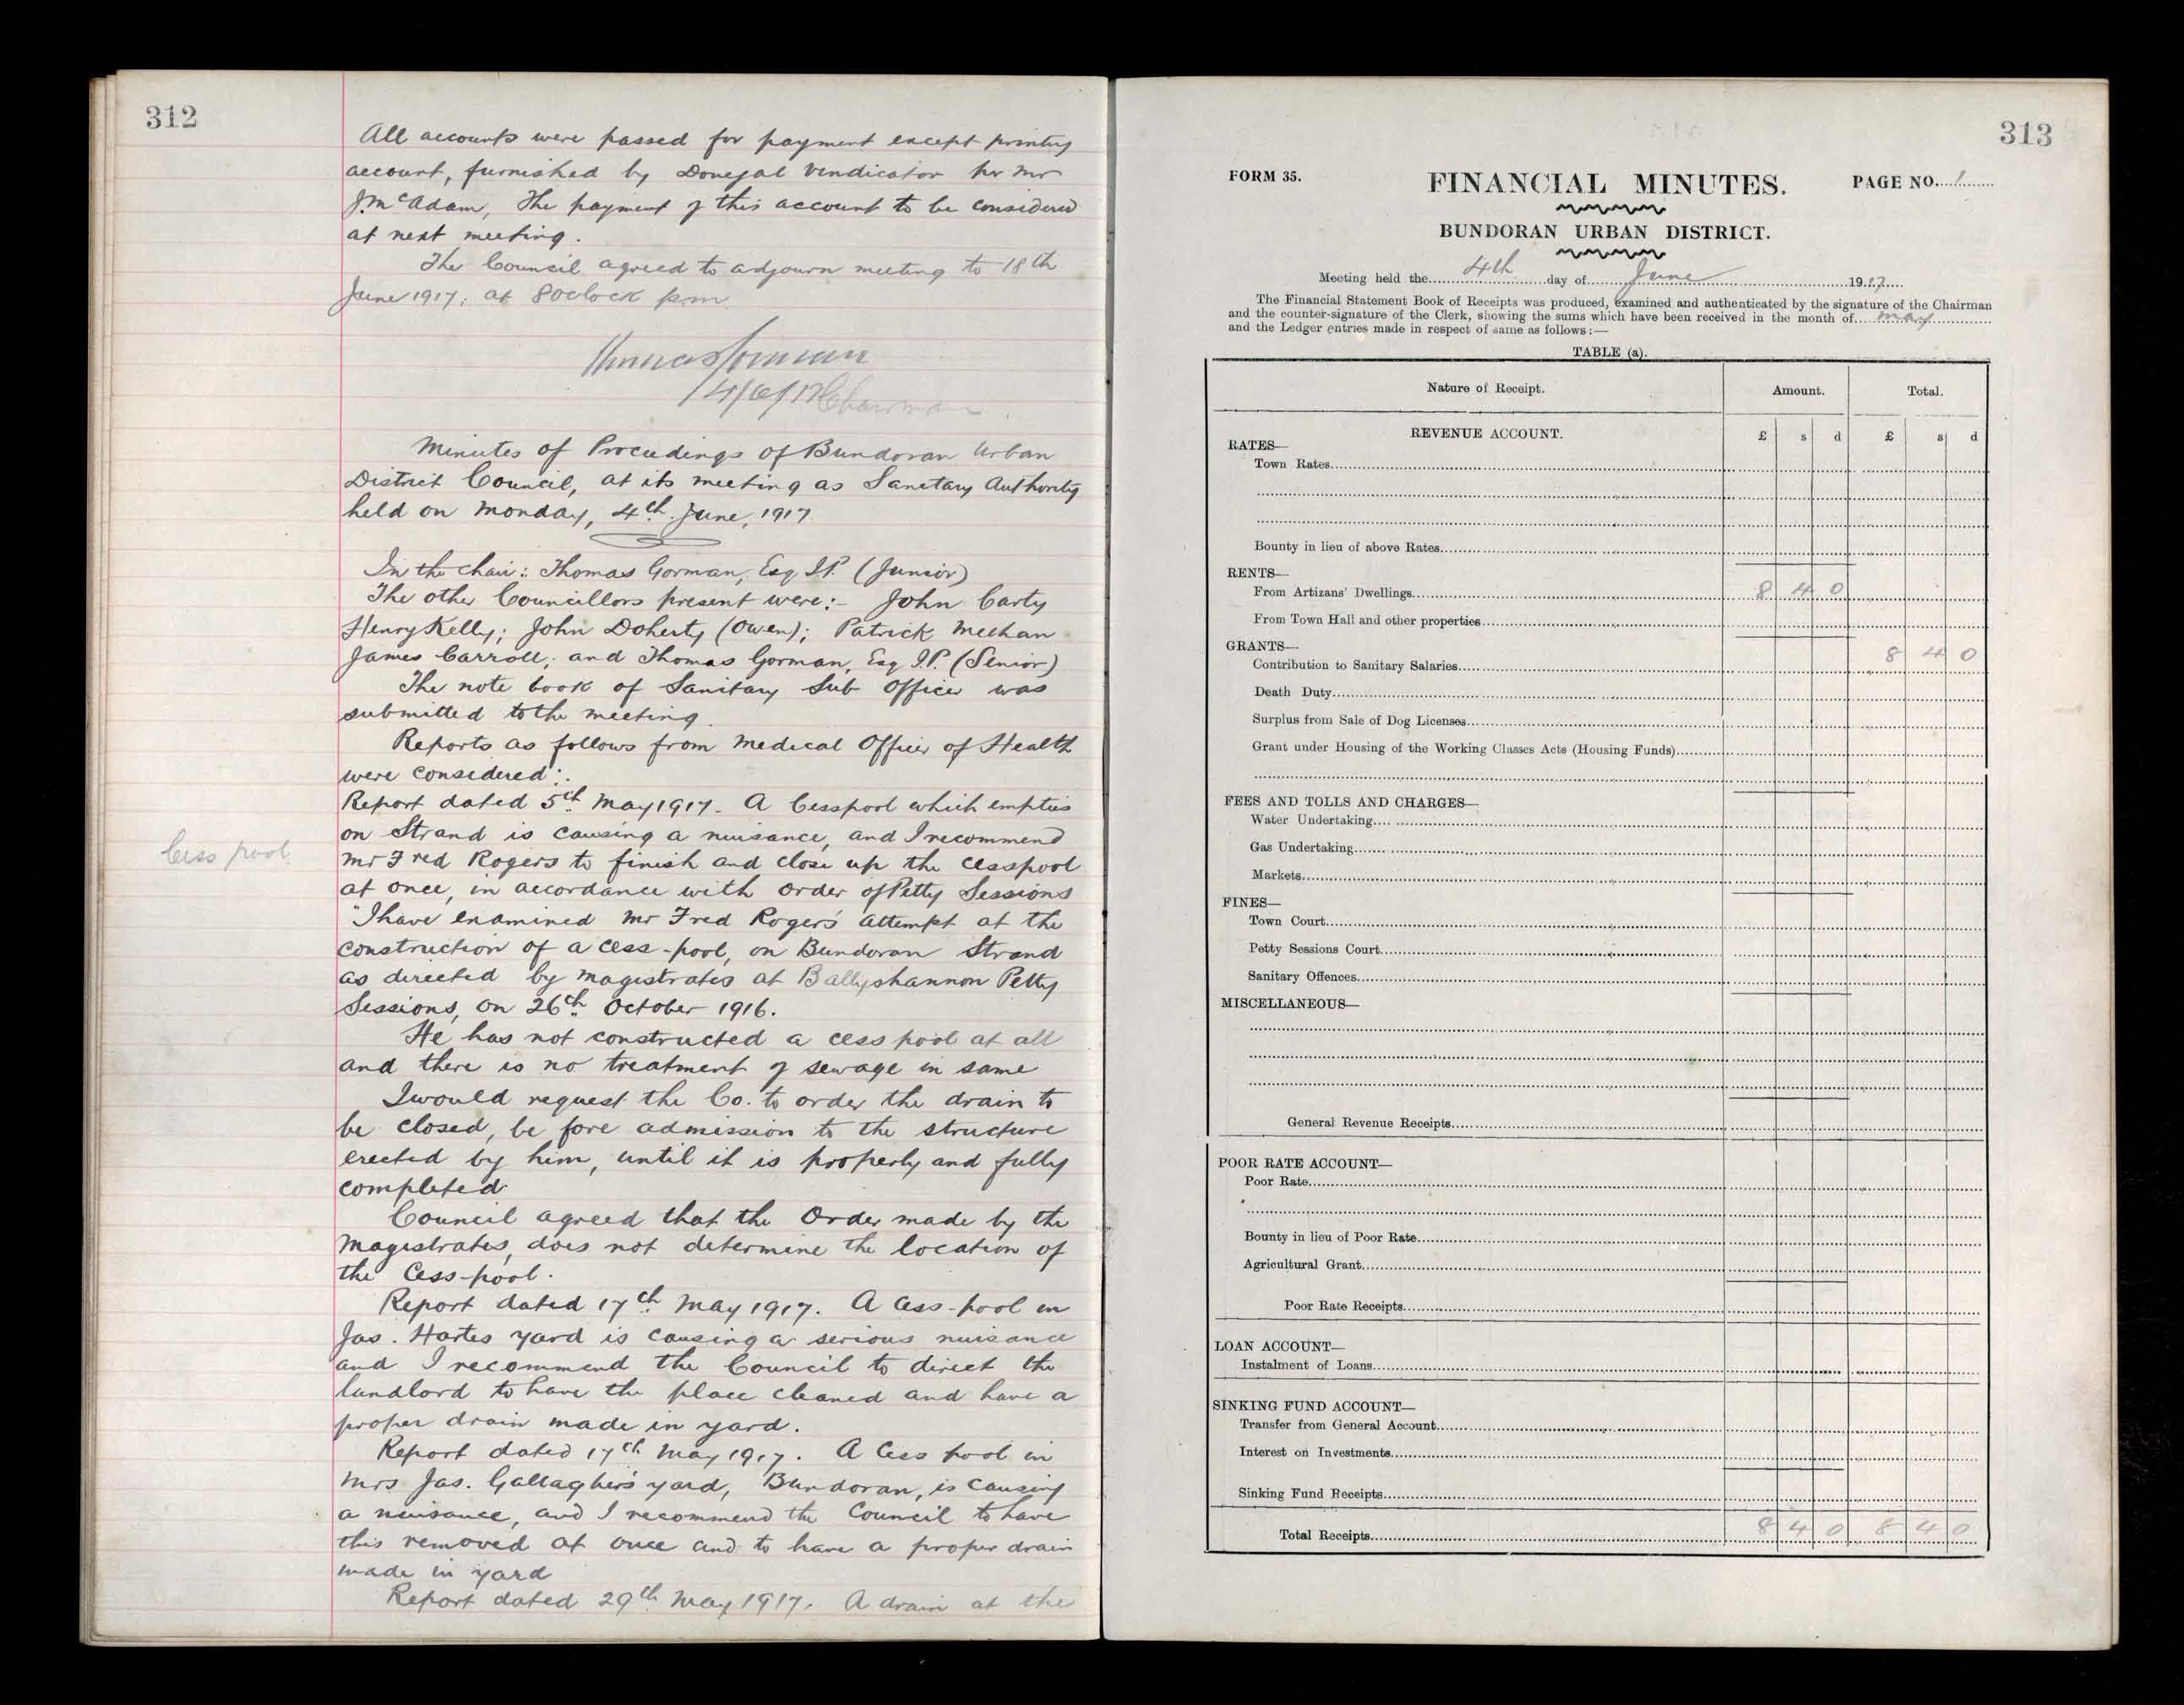 312
All accounts were passed for payment except printing
account, furnished by Donegal Vindicator per Mr
J. McAdam, The payment of this account to be considered
at next meeting.
The Council agreed to adjourn meeting to 18th
June 1917, at 8 oclock pm
Thomas Gorman
14/6/17 Chairman.
Minutes of Proceedings of Bundoran Urban
District Council, at its meeting as Sanitary Authority
held on Monday, 4th June, 1917
In the chair: Thomas Gorman, Esq J.P. (Junior)
The other Councillors present were:- John Carty
Henry Kelly; John Doherty (Owen); Patrick Meehan
James Carroll; and Thomas Gorman, Esq J.P. (Senior)
The note book of Sanitary Sub Officer was
submitted to the meeting.
Reports as follows from Medical Officer of Health
were considered:.
Report dated 5th May 1917. A Cesspool which empties
on Strand is causing a nuisance, and I recommend
Cess pool
Mr Fred Rogers to finish and close up the cesspool
at once, in accordance with order of Petty Sessions
"I have examined Mr Fred Roger's attempt at the
construction of a cess-pool, on Bundoran Strand
as directed by magistrates at Ballyshannon Petty
Sessions, on 26th October 1916.
He has not constructed a cess pool at all
and there is no treatment of sewage in same
I would request the Co. to order the drain to
be closed, be fore admission to the structure
erected by him, until it is properly and fully
completed
Council agreed that the Order made by the
Magistrates, does not determine the location of
the Cess-pool.
Report dated 17th May 1917. A Cess-pool in
Jas. Hartes yard is causing a serious nuisance
and I recommend the Council to direct the
landlord to have the place cleaned and have a
proper drain made in yard.
Report dated 17th May 1917. A Cess pool in
Mrs Jas. Gallagher's yard, Bundoran, is causing
a nuisance, and I recommend the Council to have
this removed at once and to have a proper drain
made in yard
Report dated 29th May 1917. A drain at the
313
FORM 35. FINANCIAL MINUTES. PAGE NO. 1
BUNDORAN URBAN DISTRICT.
Meeting held the 4th day of June 1917
The Financial Statement Book of Receipts was produced, examined and authenticated by the signature of the Chairman
and the counter-signature of the Clerk, showing the sums which have been received in the month of May
and the Ledger entries made in respect of same as follows:—
TABLE (a).
Nature of Receipt. Amount. Total.
REVENUE ACCOUNT. £ s d £ s d
RATES—
Town Rates
Bounty in lieu of above Rates
RENTS—
From Artizans' Dwellings 8 4 0
From Town Hall and other properties
GRANTS— 8 4 0
Contribution to Sanitary Salaries
Death Duty
Surplus from Sale of Dog Licenses
Grant under Housing of the Working Classes Acts (Housing Funds)
FEES AND TOLLS AND CHARGES—
Water Undertaking
Gas Undertaking
Markets
FINES—
Town Court
Petty Sessions Court
Sanitary Offences
MISCELLANEOUS—
General Revenue Receipts
POOR RATE ACCOUNT—
Poor Rate
Bounty in lieu of Poor Rate
Agricultural Grant
Poor Rate Receipts
LOAN ACCOUNT—
Instalment of Loans
SINKING FUND ACCOUNT—
Transfer from General Account
Interest on Investments
Sinking Fund Receipts
Total Receipts 8 4 0 8 4 0